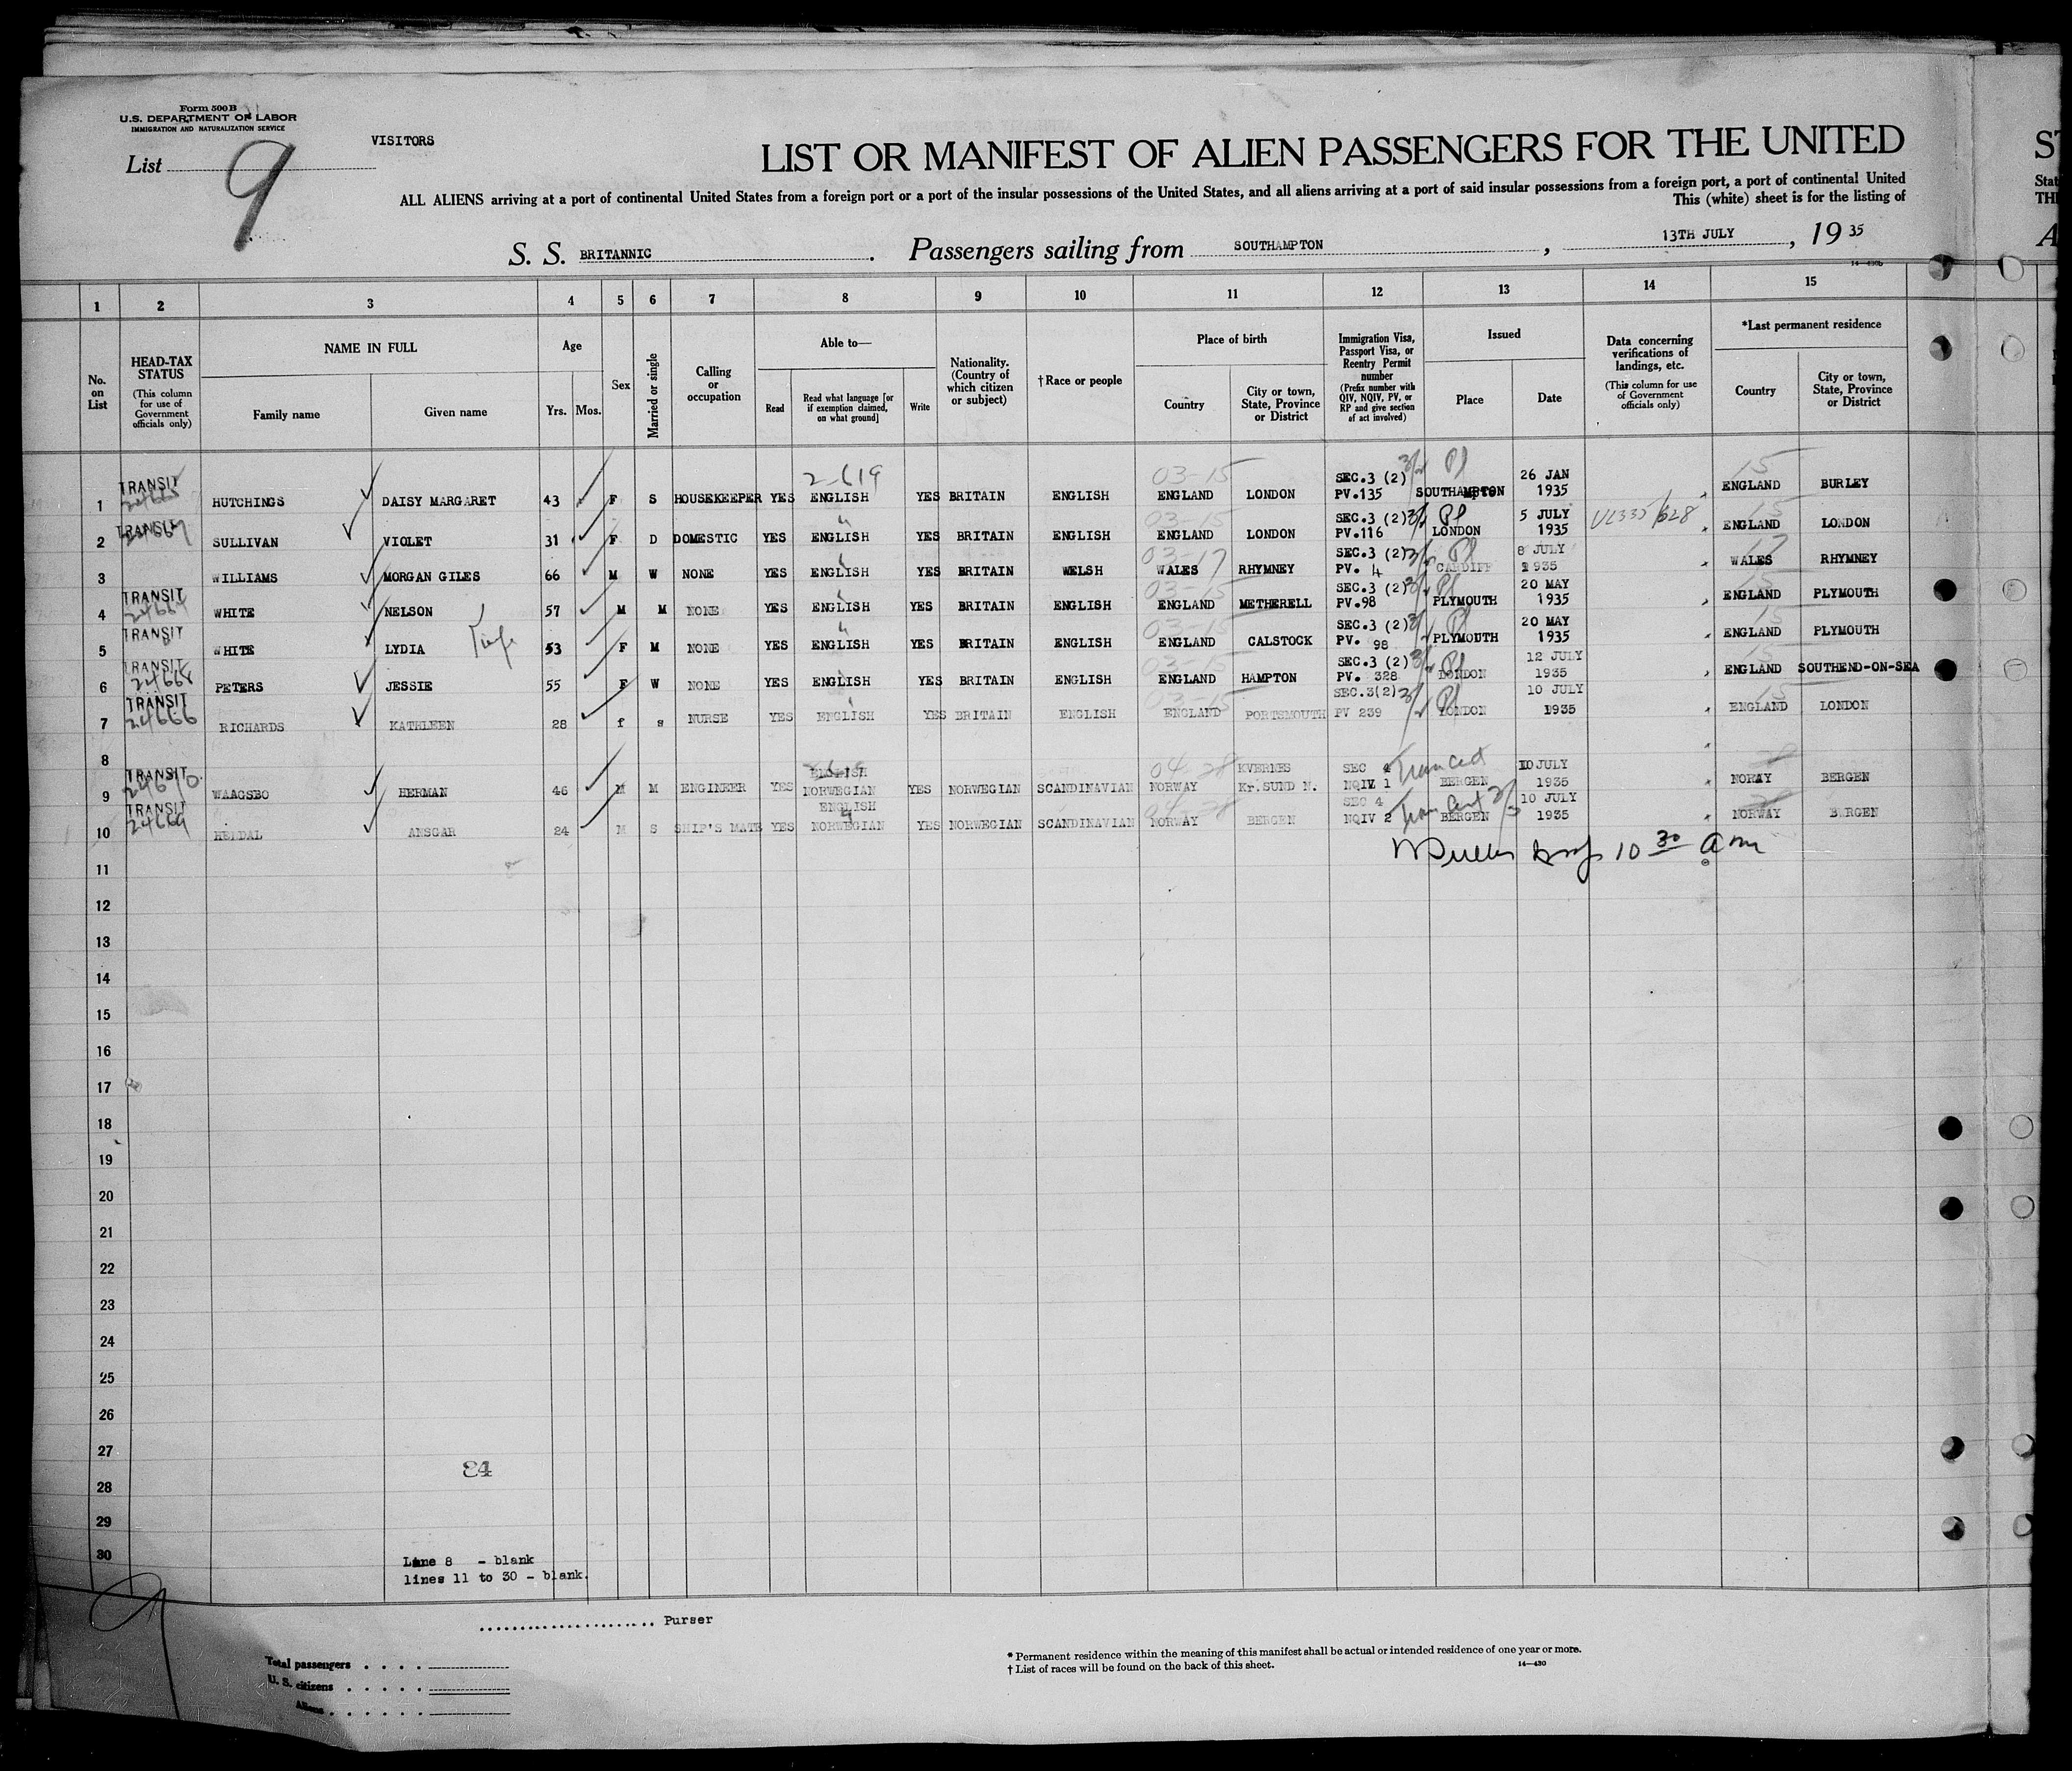 Form 500 B
U.S. DEPARTMENT OF LABOR
IMMIGRATION AND NATURALIZATION SERVICE
VISITORS
List 9
LIST OR MANIFEST OF ALIEN PASSENGERS FOR THE UNITED
ST
ALL ALIENS arriving at a port of continental United States from a foreign port or a port of the insular possessions of the United States, and all aliens arriving at a port of said insular possessions from a foreign port, a port of continental United
Stat
This (white) sheet is for the listing of
TH
S. S. BRITANNIC. Passengers sailing from SOUTHAMPTON, 13TH JULY, 19 35
A
1 2 3 4 5 6 7 8 9 10 11 12 13 14 15
No. on List
HEAD-TAX STATUS (This column for use of Government officials only)
NAME IN FULL
Family name
Given name
Age
Yrs. Mos.
Sex
Married or single
Calling or occupation
Able to—
Read
Read what language [or if exemption claimed, on what ground]
Write
Nationality. (Country of which citizen or subject)
†Race or people
Place of birth
Country
City or town, State, Province or District
Immigration Visa, Passport Visa, or Reentry Permit number (Prefix number with QIV, NQIV, PV, or RP and give section of act involved)
Issued
Place
Date
Data concerning verifications of landings, etc. (This column for use of Government officials only)
*Last permanent residence
Country
City or town, State, Province or District
1 TRANSIT HUTCHINGS DAISY MARGARET 43 F S HOUSEKEEPER YES ENGLISH YES BRITAIN ENGLISH ENGLAND LONDON SEC.3 (2) PV.135 SOUTHAMPTON 26 JAN 1935 ENGLAND BURLEY
2 TRANSIT SULLIVAN VIOLET 31 F D DOMESTIC YES ENGLISH YES BRITAIN ENGLISH ENGLAND LONDON SEC.3 (2) PV.116 LONDON 5 JULY 1935 ENGLAND LONDON
3 WILLIAMS MORGAN GILES 66 M W NONE YES ENGLISH YES BRITAIN WELSH WALES RHYMNEY SEC.3 (2) PV. 4 CARDIFF 8 JULY 1935 WALES RHYMNEY
4 TRANSIT WHITE NELSON 57 M M NONE YES ENGLISH YES BRITAIN ENGLISH ENGLAND METHERELL SEC.3 (2) PV.98 PLYMOUTH 20 MAY 1935 ENGLAND PLYMOUTH
5 TRANSIT WHITE LYDIA 53 F M NONE YES ENGLISH YES BRITAIN ENGLISH ENGLAND CALSTOCK SEC.3 (2) PV. 98 PLYMOUTH 20 MAY 1935 ENGLAND PLYMOUTH
6 TRANSIT 24668 PETERS JESSIE 55 F W NONE YES ENGLISH YES BRITAIN ENGLISH ENGLAND HAMPTON SEC.3 (2) PV. 328 LONDON 12 JULY 1935 ENGLAND SOUTHEND-ON-SEA
7 TRANSIT 24666 RICHARDS KATHLEEN 28 f s NURSE YES ENGLISH YES BRITAIN ENGLISH ENGLAND PORTSMOUTH SEC.3(2) PV 239 LONDON 10 JULY 1935 ENGLAND LONDON
8
9 TRANSIT 24670 WAAGSBO HERMAN 46 M M ENGINEER YES ENGLISH NORWEGIAN YES NORWEGIAN SCANDINAVIAN NORWAY KVERNES Kr.SUND N. SEC 4 NQIV 1 BERGEN 10 JULY 1935 NORAY BERGEN
10 TRANSIT 24669 HENDAL ANSGAR 24 M S SHIP'S MATE YES ENGLISH NORWEGIAN YES NORWEGIAN SCANDINAVIAN NORWAY BERGEN SEC 4 NQIV 2 BERGEN 10 JULY 1935 NORWAY BERGEN
10 30 am
11
12
13
14
15
16
17
18
19
20
21
22
23
24
25
26
27
84
28
29
30
Line 8 - blank
lines 11 to 30 - blank.
9
Purser
Total passengers
U. S. citizens
Aliens
* Permanent residence within the meaning of this manifest shall be actual or intended residence of one year or more.
† List of races will be found on the back of this sheet.
14—430